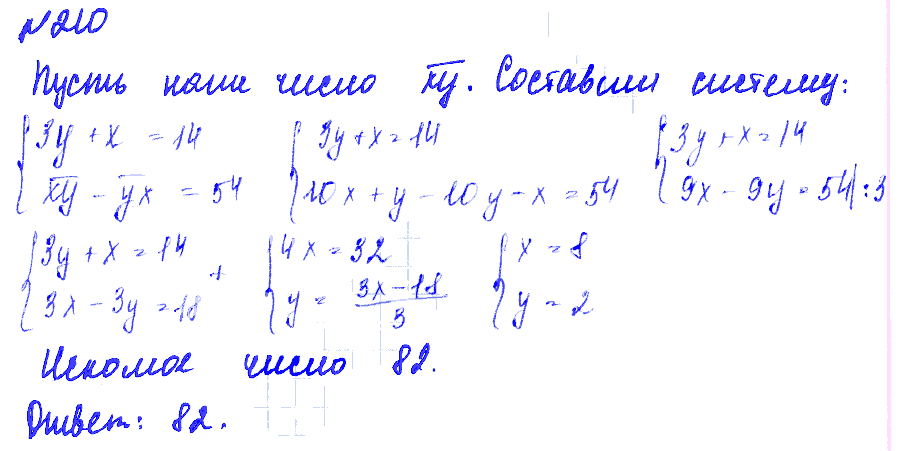 №210
Пусть наше число x̅y̅. Составим систему:
{3y + x = 14 {3y + x = 14 {3y + x = 14
{x̅y̅ − y̅x̅ = 54 {10x + y − 10y − x = 54 {9x − 9y = 54|:3
{3y + x = 14 + {4x = 32 {x = 8
{3x − 3y = 18 {y = (3x − 18)/3 {y = 2
Искомое число 82.
Ответ: 82.